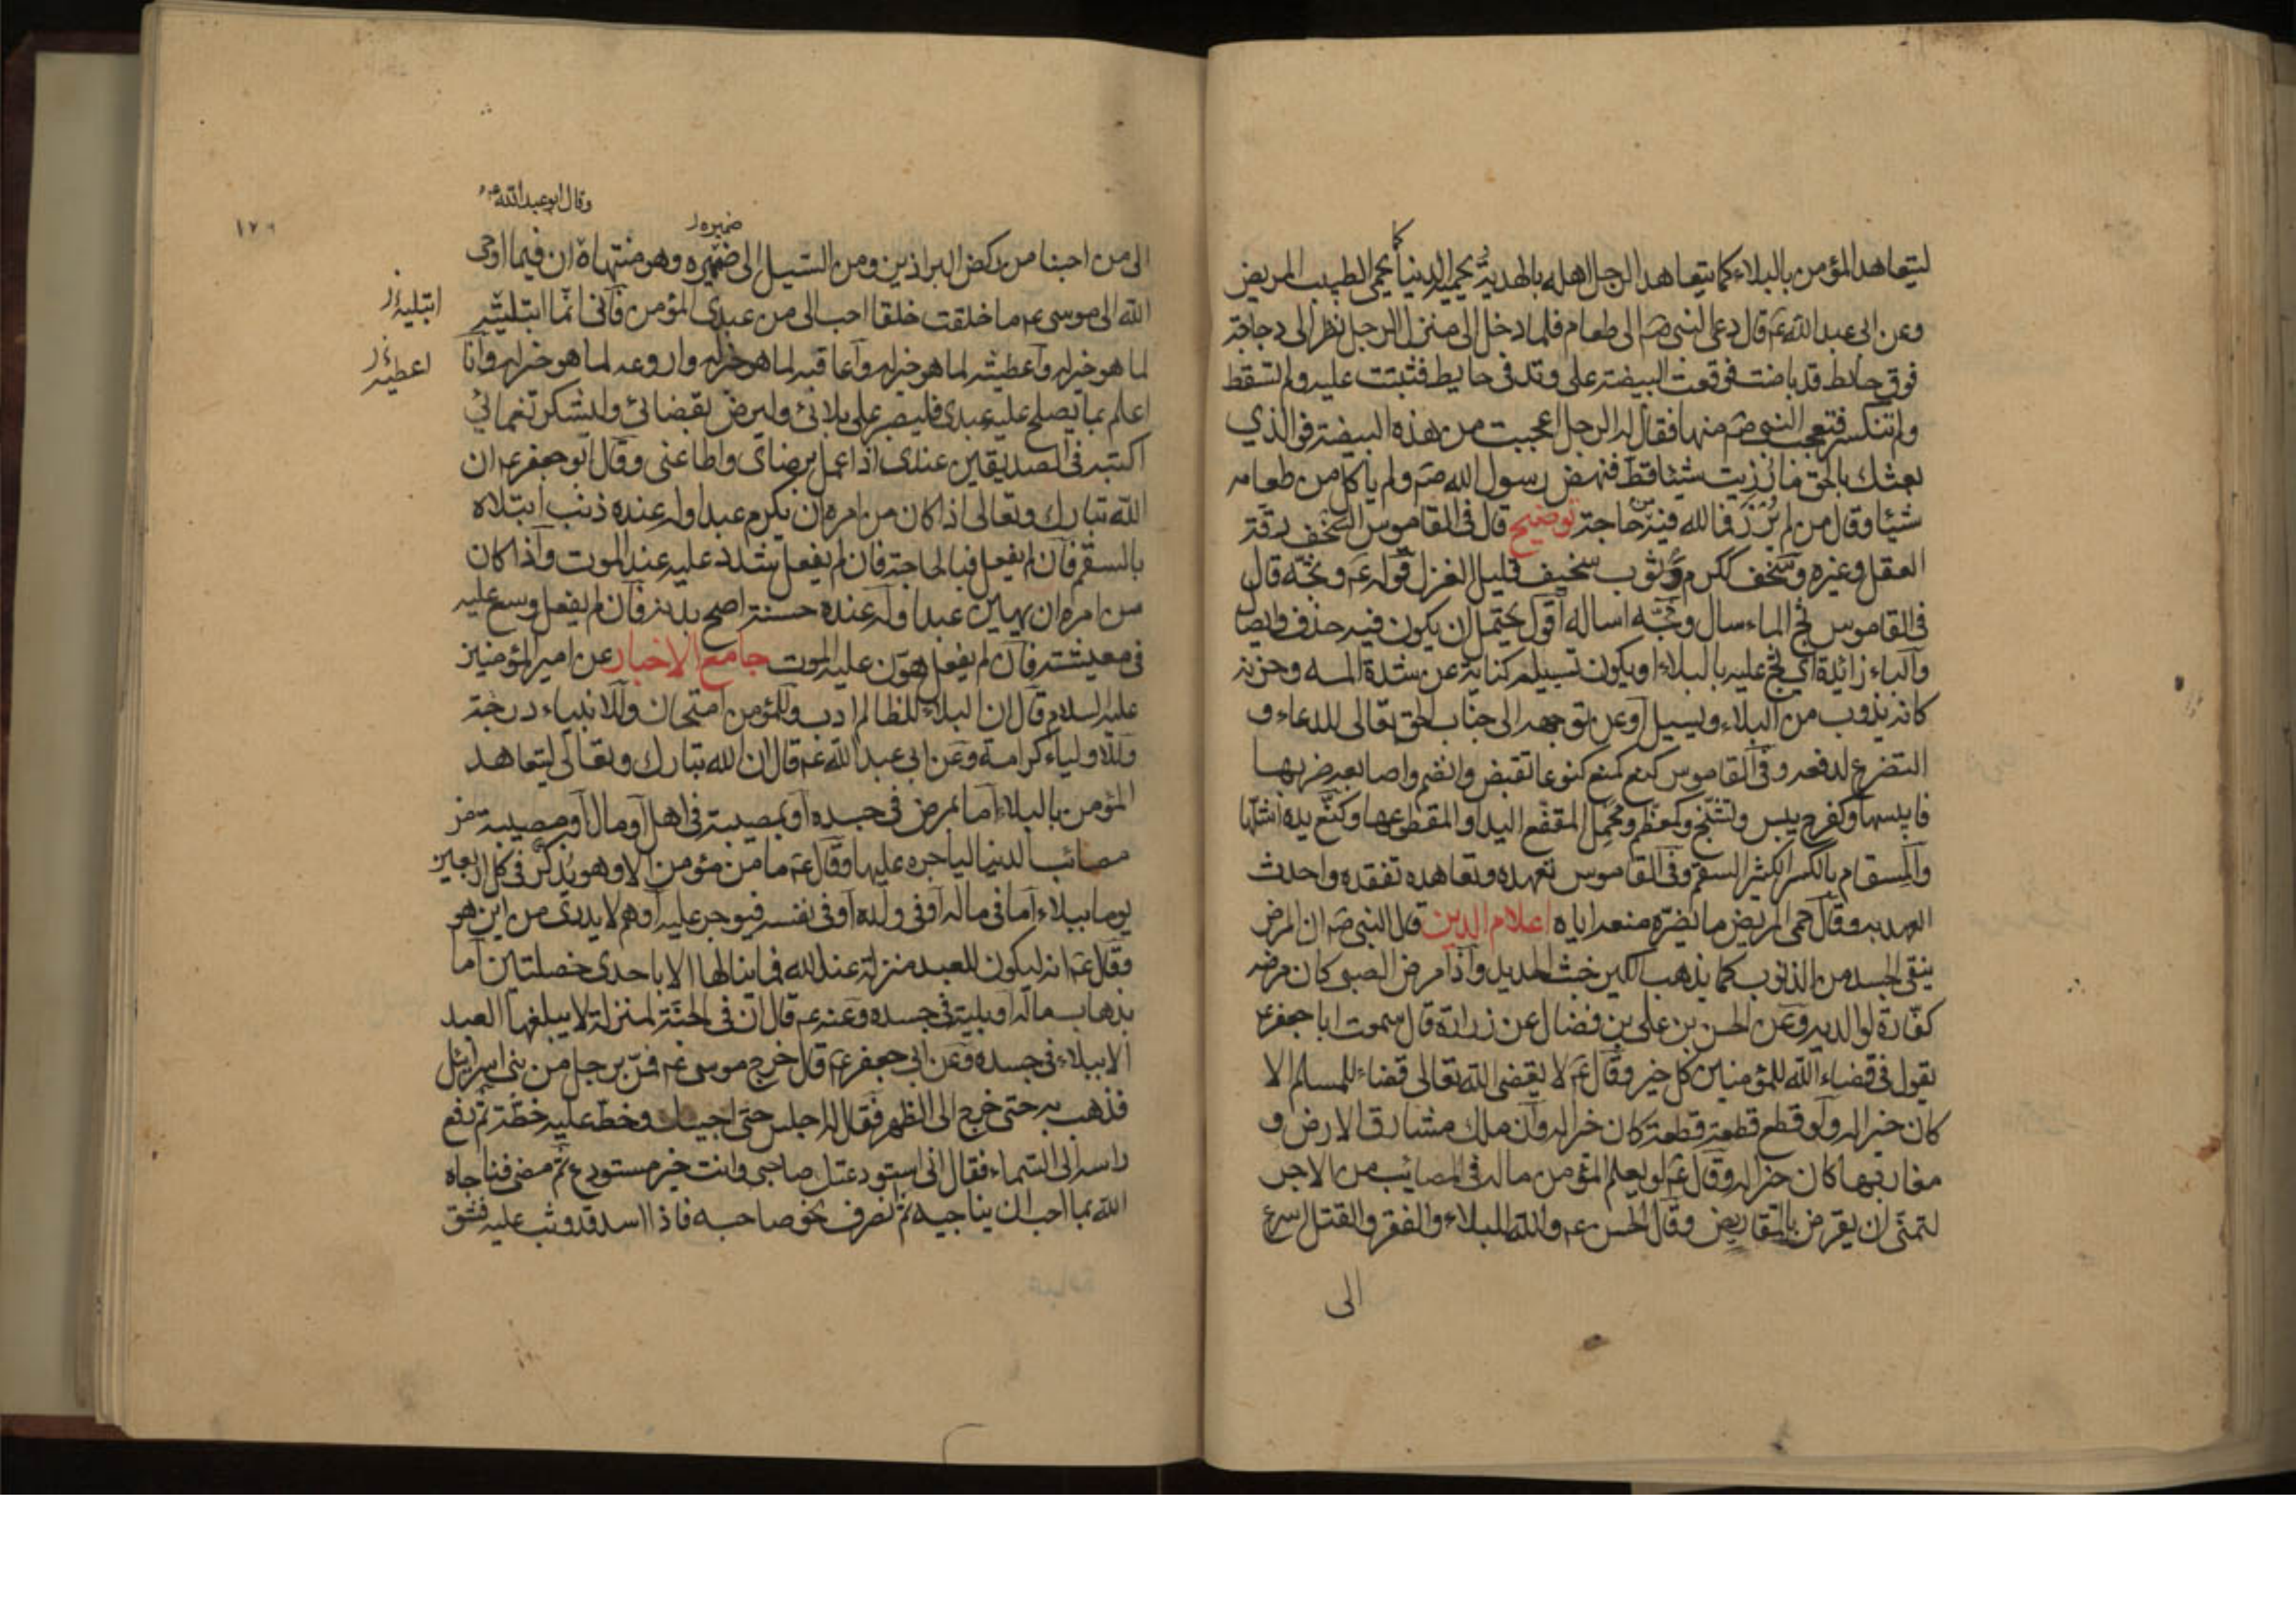 كما
ليتعاهد المؤمن بالبلاء كما يتعاهد الرجل اهله بالهدية ويحميه الدنيا كما يحمي الطبيب المريض
وعن ابى عبد الله عم قال دعى النبى صم الى طعام فلما دخل الى منزل الرجل نظر الى دجاجة
فوق حايط قد باضت فوقعت البيضة على وتد فى حايط فثبتت عليه ولم تسقط
ولم تنكسر فتعجب النبى صم منها فقال له الرجل اعجبت من هذه البيضة فو الذي
بعثك بالحق ما رزيت شيئا قط فنهض رسول الله صم ولم ياكل من طعامه
شيئا وقال من لم يرزء فما لله فيه من حاجة توضيح قال فى القاموس السخف رقة
العقل وغيره وسخف ككرم وثوب سخيف قليل الغزل قوله عم وثجه قال
فى القاموس ثج الماء سال وثجه اساله اقول يحتمل ان يكون فيه حذف وايصال
والباء زائدة اي ثج عليه بالبلاء او يكون تسييله كناية عن شدة المه وحزنه
كانه يذوب من البلاء ويسيل او عن توجهه الى جناب الحق تعالى للدعاء و
التضرع لدفعه وفى القاموس كنع كمنع كنوعا تقبض وانضم واصابعه ضربها
فايبسها وكفرح يبس وتشنج وكمعظم ومجمل المقفع اليد او المقطوعها وكنع يده اشلها
والمسقام بالكسر الكثير السقم وفى القاموس تعهده وتعاهده تفقده واحدث
العهد به وقال حمى المريض ما يضره منعه اياه اعلام الدين قال النبى صم ان المرض
ينقى الجسد من الذنوب كما يذهب الكير خبث الحديد واذا مرض الصبى كان مرضه
كفارة لوالديه وعن الحسن بن على بن فضال عن زرارة قال سمعت ابا جعفر عم
يقول فى قضاء الله للمؤمنين كل خير وقال عم لا يقضى الله تعالى قضاء للمسلم الا
كان خيرا له ولو قطع قطعة قطعة كان خيرا له وان ملك مشارق الارض و
مغاربها كان خيرا له وقال عم لو يعلم المؤمن ما له فى المصائب من الاجر
لتمنى ان يقرض بالمقاريض وقال الحسن عم والله للبلاء والفقر والقتل اسرع
الى
١٧٩
وقال ابو عبد الله عم
ضميره
الى من احبنا من ركض البراذين ومن السيل الى ضميره وهو منتهاه ان فيما اوحى
ابتليه
الله الى موسى عم ما خلقت خلقا احب الى من عبدى المؤمن فانى انما ابتليته
اعطيه
لما هو خير له واعطيته لما هو خير له واعاقبه لما هو خير له واروعه لما هو خير له وانا
اعلم بما يصلح عليه عبدى فليصبر على بلائى وليرض بقضائى وليشكر نعمائى
اكتبه فى الصديقين عندى اذا عمل برضاى واطاعنى وقال ابو جعفر عم ان
الله تبارك وتعالى اذا كان من امره ان يكرم عبدا وله عنده ذنب ابتلاه
بالسقم فان لم يفعل فبالحاجة فان لم يفعل شدد عليه عند الموت واذا كان
من امره ان يهين عبدا وله عنده حسنة اصح بدنه فان لم يفعل وسع عليه
فى معيشته فان لم يفعل هون عليه الموت جامع الاخبار عن امير المؤمنين
عليه السلام قال ان البلاء للظالم ادب وللمؤمن امتحان وللانبياء درجة
وللاولياء كرامة وعن ابى عبد الله عم قال ان الله تبارك وتعالى ليتعاهد
المؤمن بالبلاء اما بمرض فى جسده او بمصيبة فى اهل او مال او مصيبة من
مصائب الدنيا لياجره عليها وقال عم ما من مؤمن الا وهو يذكر فى كل اربعين
يوما ببلاء اما فى ماله او فى ولده او فى نفسه فيوجر عليه او هم لا يدرى من اين هو
وقال عم انه ليكون للعبد منزلة عند الله فما ينالها الا باحدى خصلتين اما
بذهاب ماله او بلية فى جسده وعنه عم قال ان فى الجنة لمنزلة لا يبلغها العبد
الا ببلاء فى جسده وعن ابى جعفر عم قال خرج موسى عم فمر برجل من بنى اسرائيل
فذهب به حتى خرج الى الظهر فقال له اجلس حتى اجيئك وخط عليه خطة ثم رفع
راسه الى السماء فقال انى استودعتك صاحبى وانت خير مستودع ثم مضى فناجاه
الله بما احب ان يناجيه ثم انصرف نحو صاحبه فاذا اسد قد وثب عليه فشق